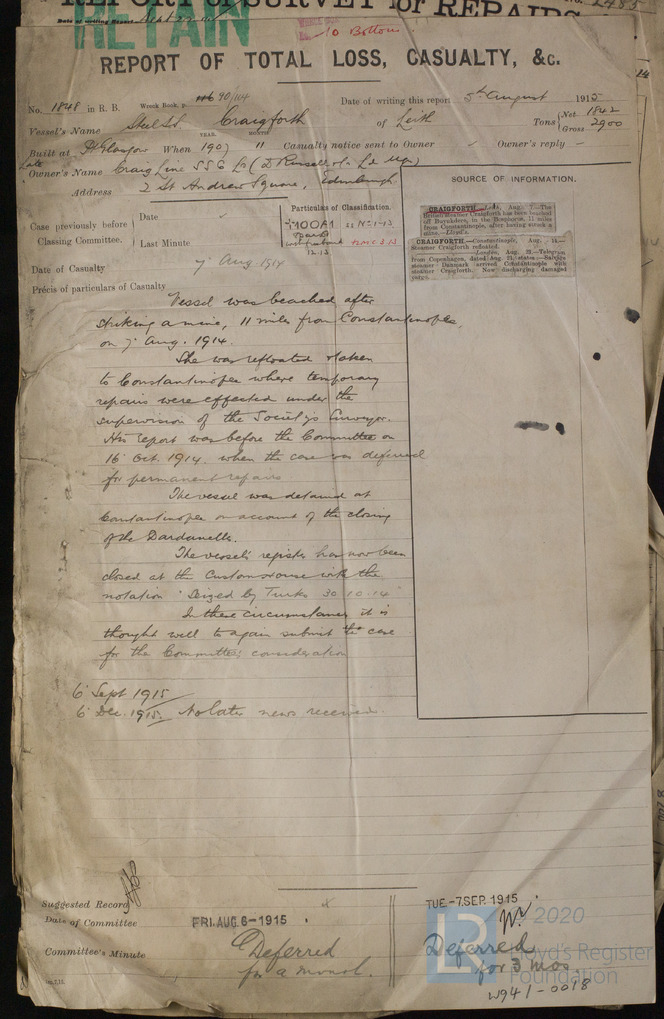 REPORT OF SURVEY for REPAIRS
Date of writing Report Sept 22
RETAIN
10 Bottom
REPORT OF TOTAL LOSS, CASUALTY, &c.
No. 1848 in R. B. Wreck Book, p. 90/104
Date of writing this report 5th August 1915
Vessel's Name Steel S.S. Craigforth of Leith
Tons Net 1842
Gross 2900
YEAR. MONTH.
Built at Pt Glasgow When 1907 11 Casualty notice sent to Owner Owner's reply -
Late
Owner's Name Craig Line SS Co Ld
Address 2 St Andrew Square, Edinburgh
SOURCE OF INFORMATION.
Case previously before Classing Committee.
Date
Last Minute
Particulars of Classification.
+100A1
CRAIGFORTH
British steamer Craigforth has been beached off Buyukdere, in the Bosphorus, 11 miles from Constantinople, after having struck a mine.—Lloyd's.
CRAIGFORTH.—Constantinople, Aug.
Steamer Craigforth refloated.
London, Aug. Telegram from Copenhagen, dated Aug. 21, states—Salvage steamer Danmark arrived Constantinople with steamer Craigforth. Now discharging damaged
Date of Casualty 7th Aug. 1914
Précis of particulars of Casualty
Vessel was beached after
striking a mine, 11 miles from Constantinople,
on 7th Aug. 1914.
She was refloated & taken
to Constantinople where temporary
repairs were effected under the
supervision of the Society's Surveyor.
His report was before the Committee on
16 Oct. 1914. when the case was deferred
for permanent repairs
The vessel was detained at
Constantinople on account of the closing
of the Dardanelles.
The vessel's register has now been
closed at the Customs House with the
notation "Seized by Turks 30-10-14"
In these circumstances it is
thought well to again submit the case
for the Committee's consideration
6 Sept 1915
6 Dec. 1915. No later news received.
Suggested Record
Date of Committee FRI. AUG. 6-1915
TUE-7.SEP. 1915
Committee's Minute
Deferred
for a month.
Deferred
for 3 mos.
LR
© 2020
Lloyd's Register
Foundation
W941-0018